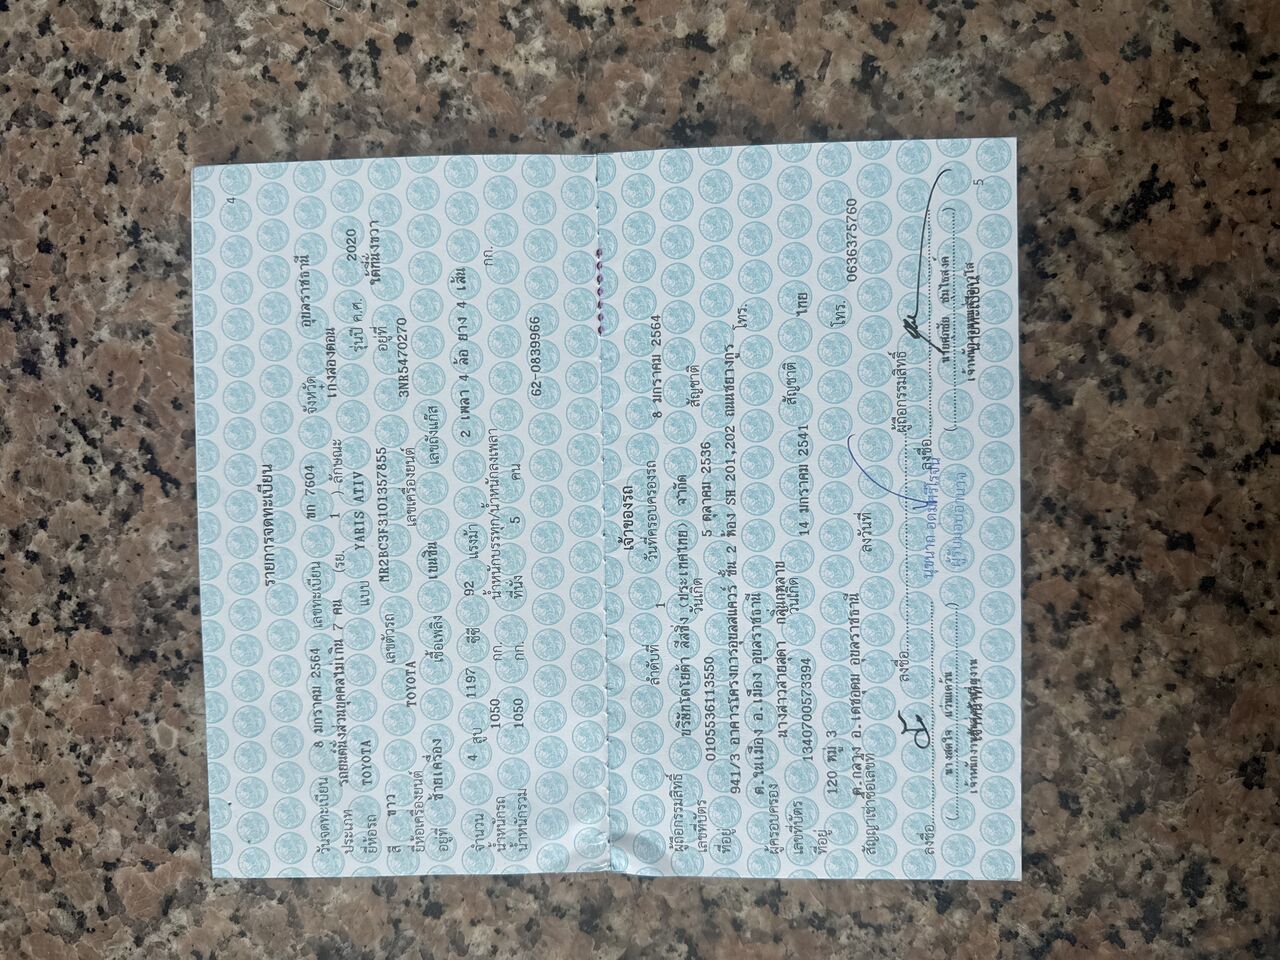 4
รายการจดทะเบียน
วันจดทะเบียน 8 มกราคม 2564 เลขทะเบียน ขก 7604 จังหวัด อุบลราชธานี
ประเภท รถยนต์นั่งส่วนบุคคลไม่เกิน 7 คน (รย. 1 ) ลักษณะ เก๋งสองตอน
ยี่ห้อรถ TOYOTA แบบ YARIS ATIV รุ่นปี ค.ศ. 2020
สี ขาว เลขตัวรถ MR2BC3F3101357855 อยู่ที่ ใต้ที่นั่งขวา
ยี่ห้อเครื่องยนต์ TOYOTA เลขเครื่องยนต์ 3NR5470270
อยู่ที่ ซ้ายเครื่อง เชื้อเพลิง เบนซิน เลขถังแก๊ส
จำนวน 4 สูบ 1197 ซีซี 92 แรงม้า 2 เพลา 4 ล้อ ยาง 4 เส้น
น้ำหนักรถ 1050 กก. น้ำหนักบรรทุก/น้ำหนักลงเพลา กก.
น้ำหนักรวม 1050 กก. ที่นั่ง 5 คน
62-0839966
เจ้าของรถ
ลำดับที่ 1 วันที่ครอบครองรถ 8 มกราคม 2564
ผู้ถือกรรมสิทธิ์ บริษัทโตโยต้า ลีสซิ่ง (ประเทศไทย) จำกัด
เลขที่บัตร 0105536113550 วันเกิด 5 ตุลาคม 2536 สัญชาติ
ที่อยู่ 941/3 อาคารโครงการอุบลสแควร์ ชั้น 2 ห้อง SH 201,202 ถนนชยางกูร
ต.ในเมือง อ.เมือง อุบลราชธานี โทร.
ผู้ครอบครอง นางสาวสายสุดา กลิ่นกุหลาบ
เลขที่บัตร 1340700573394 วันเกิด 14 มกราคม 2541 สัญชาติ ไทย
ที่อยู่ 120 หมู่ 3
ต.กลาง อ.เดชอุดม อุบลราชธานี โทร. 0636375760
สัญญาเช่าซื้อเลขที่ ลงวันที่
ลงชื่อ ผู้ถือกรรมสิทธิ์
ผู้รับมอบอำนาจ
ลงชื่อ ลงชื่อ
นายทะเบียน
5